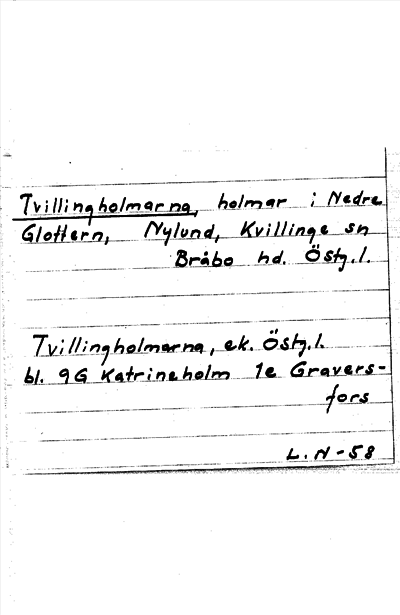 Tvillingholmarna, holmar i Nedre
Glottern, Nylund, Kvillinge sn
Bråbo hd. Östg.l.
Tvillingholmarna, ek. Östg.l.
bl. 9G Katrineholm 1e Gravers-
fors
L.N-58